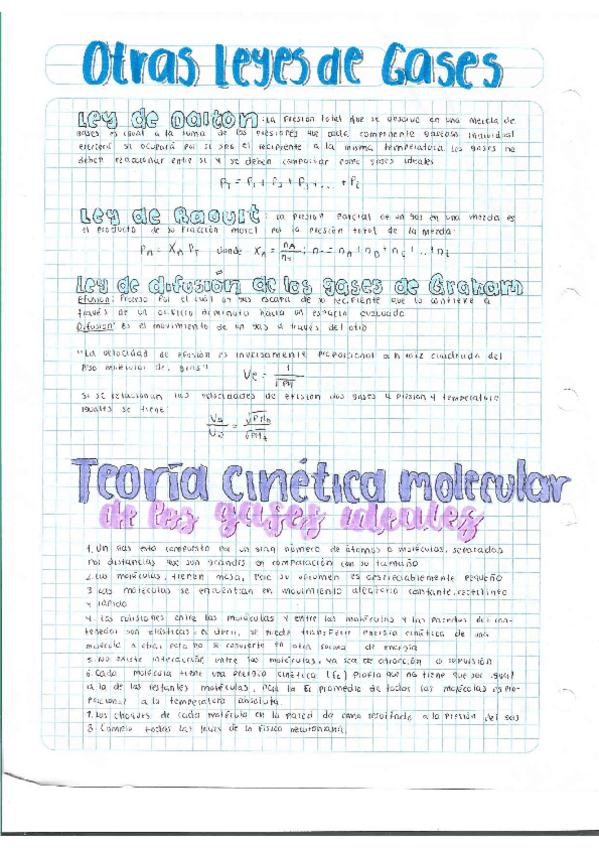 Otras Leyes de Gases
Ley de Dalton: La presión total que se observa en una mezcla de
gases es igual a la suma de las presiones que cada componente gaseoso individual
ejercerá si ocupará por si solo el recipiente a la misma temperatura. Los gases no
deben reaccionar entre si y se deben comportar como gases ideales
P_T = P_1 + P_2 + P_3 + ... + P_i
Ley de Raoult: La presión parcial de un gas en una mezcla es
el producto de su fracción molar por la presión total de la mezcla:
P_A = X_A P_T donde X_A = n_A
Ley de difusión de los gases de Graham
Efusión: Proceso por el cual un gas escapa de su recipiente que lo contiene a
través de un orificio diminuto hacia un espacio evacuado
Difusión: Es el movimiento de un gas a través del otro
"La velocidad de efusión es inversamente proporcional a la raíz cuadrada del
peso molecular del gas"
Si se relacionan las velocidades de efusión dos gases a presión y temperatura
iguales se tiene
Teoría cinética molecular
de los gases ideales
1. Un gas está compuesto por un gran número de átomos o moléculas, separados
por distancias que son grandes en comparación con su tamaño
2. Las moléculas, tienen masa, pero su volumen es despreciablemente pequeño
3. Las moléculas se encuentran en movimiento aleatorio constante, rectilíneo
y rápido
4. Las colisiones entre las moléculas y entre las moléculas y las paredes del con-
tenedor son elásticas, es decir, se puede transferir energía cinética de una
molécula a otra, pero no se convierte en otra forma de energía
5. No existe interacción entre las moléculas, ya sea de atracción o repulsión
6. Cada molécula tiene una energía cinética (Ec) propia que no tiene que ser igual
a la de las restantes moléculas, pero la Ec promedio de todas las moléculas es pro-
porcional a la temperatura absoluta.
7. Los choques de cada molécula en la pared da como resultado a la presión del gas
8. Cumple todas las leyes de la física newtoniana.